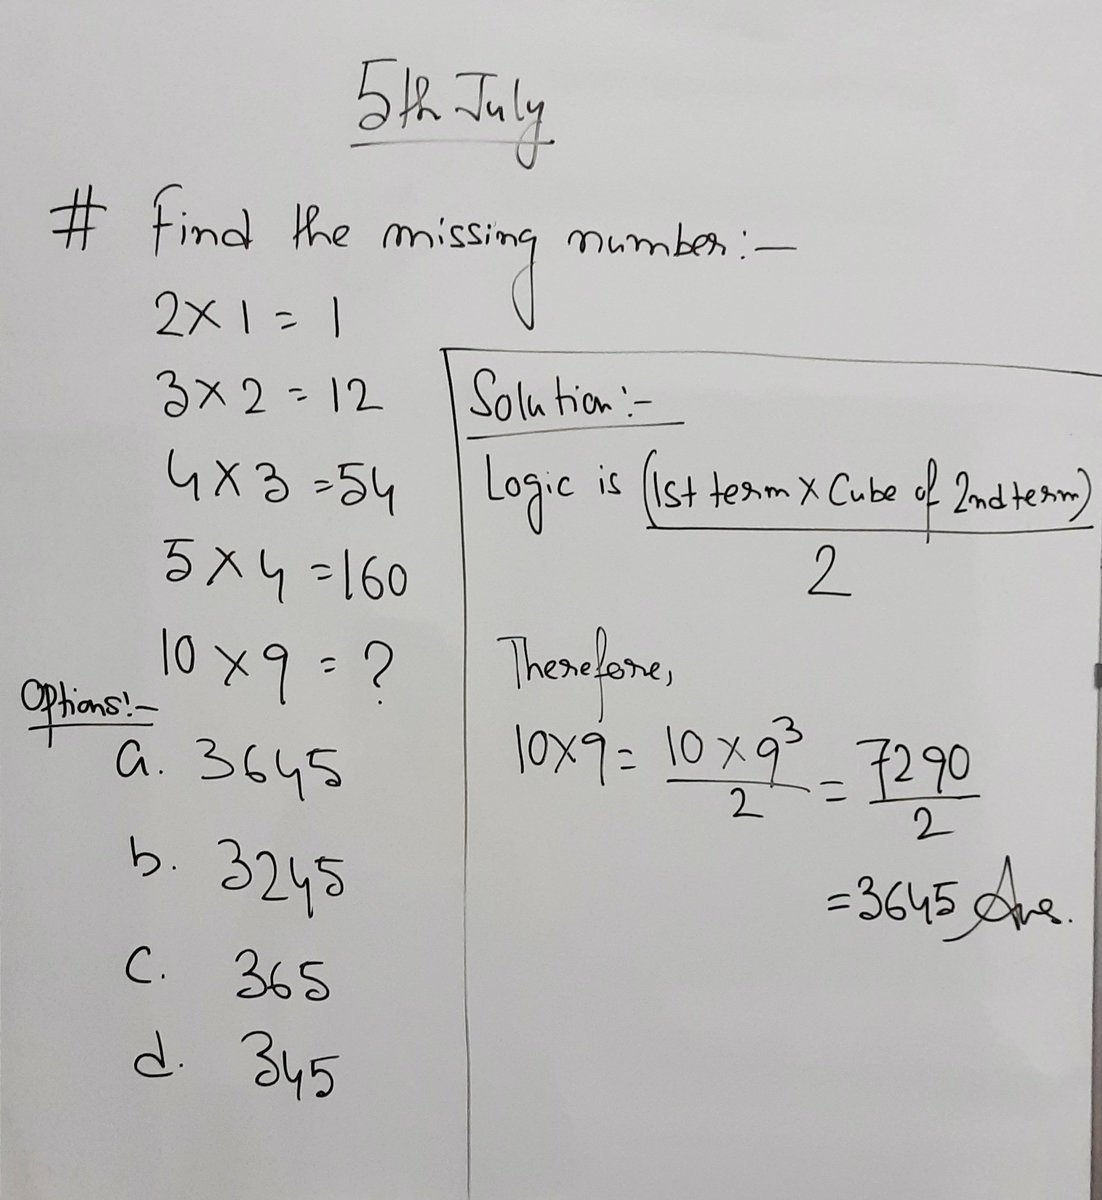 5th July
# Find the missing number:-
2×1=1
3×2=12
4×3=54
5×4=160
10×9=?
Options:-
a. 3645
b. 3245
c. 365
d. 345
Solution:-
Logic is (1st term × Cube of 2nd term)
2
Therefore,
10×9= 10×9³ = 7290
2 2
=3645 Ans.